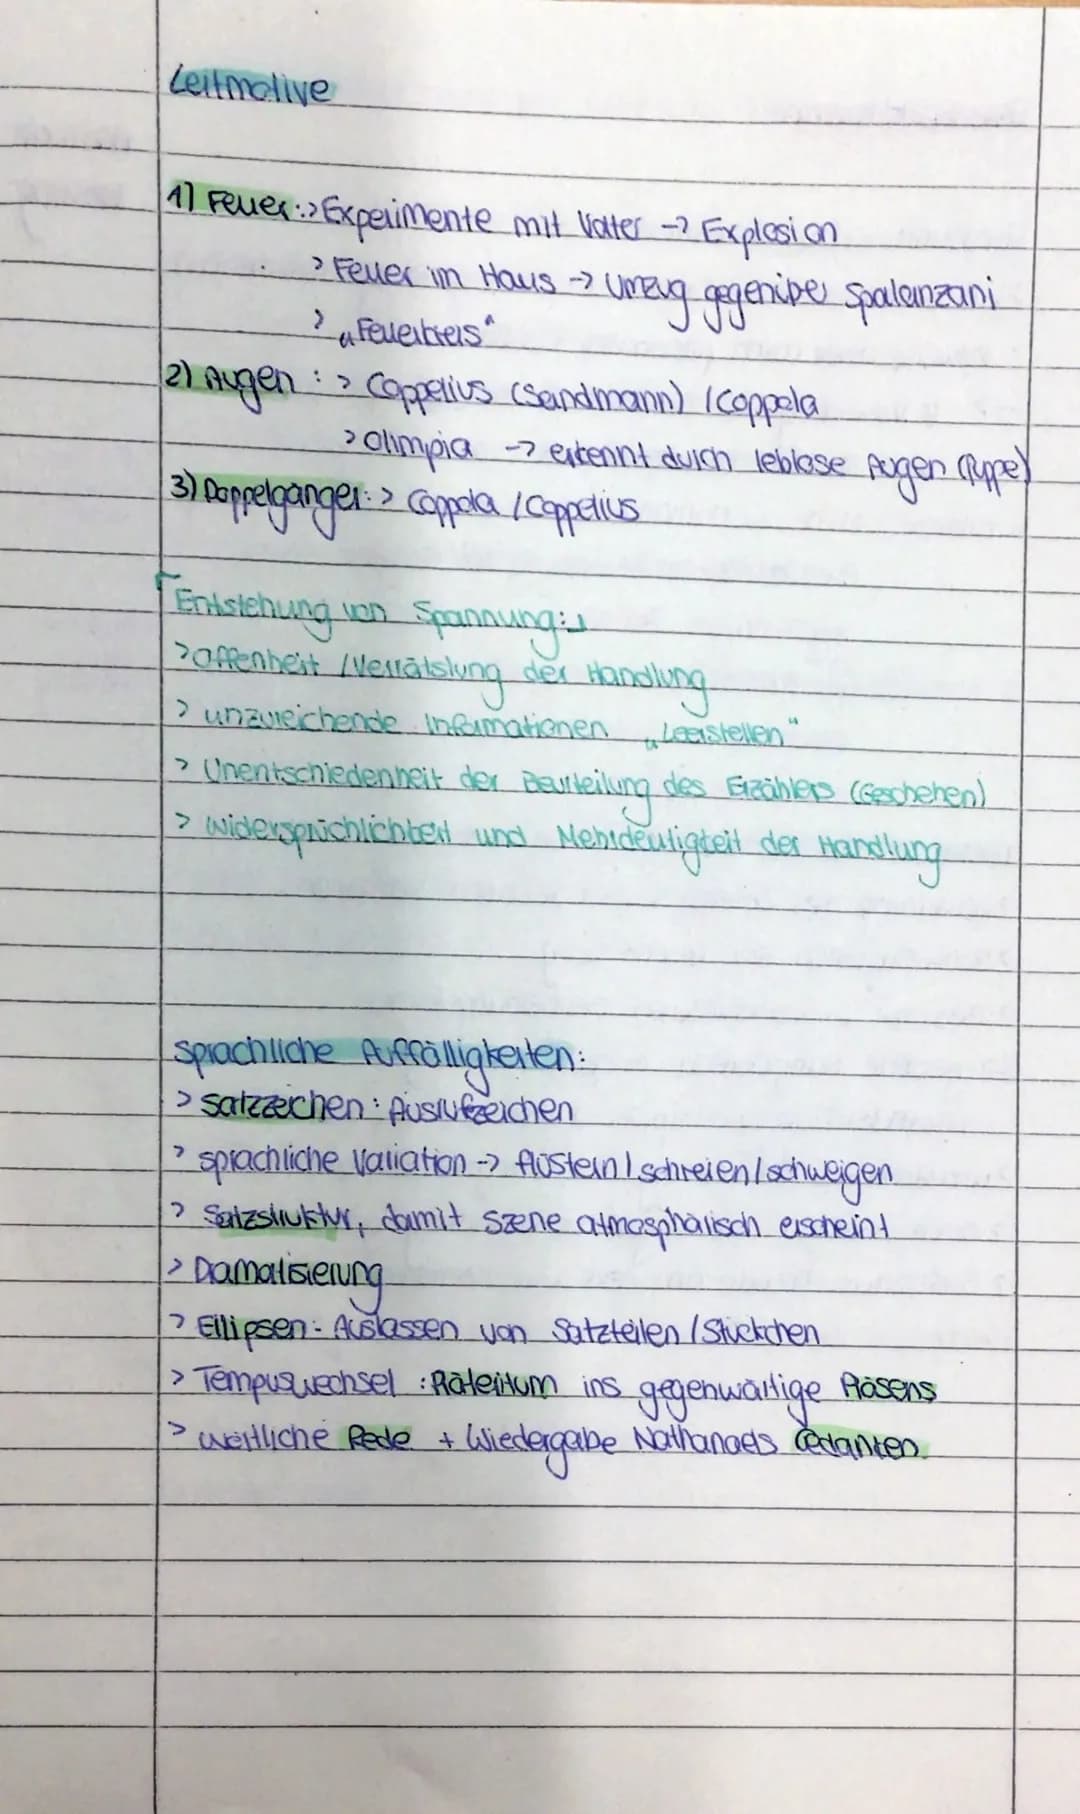 Leitmotive
1) Feuer: > Experimente mit Vater -> Explosion
> Feuer im Haus -> Umzug gegenüber Spalanzani
> „Feuerkreis"
2) Augen : > Coppelius (Sandmann) / Coppola
> Olimpia -> erkennt durch leblose Augen (Puppe)
3) Doppelgänger: > Coppola / Coppelius
Entstehung von Spannung:
> Offenheit / Verrätslung der Handlung
> unzureichende Informationen „Leerstellen"
> Unentschiedenheit der Beurteilung des Erzählers (Geschehen)
> Widersprüchlichkeit und Mehrdeutigkeit der Handlung
Sprachliche Auffälligkeiten:
> Satzzeichen: Ausrufzeichen
> sprachliche Variation -> flüstern / schreien / schweigen
> Satzstruktur, damit Szene atmosphärisch erscheint
> Damalisierung
> Ellipsen: Auslassen von Satzteilen / Stückchen
> Tempuswechsel : Präteritum ins gegenwärtige Präsens
> wörtliche Rede + Wiedergabe Nathanaels Gedanken